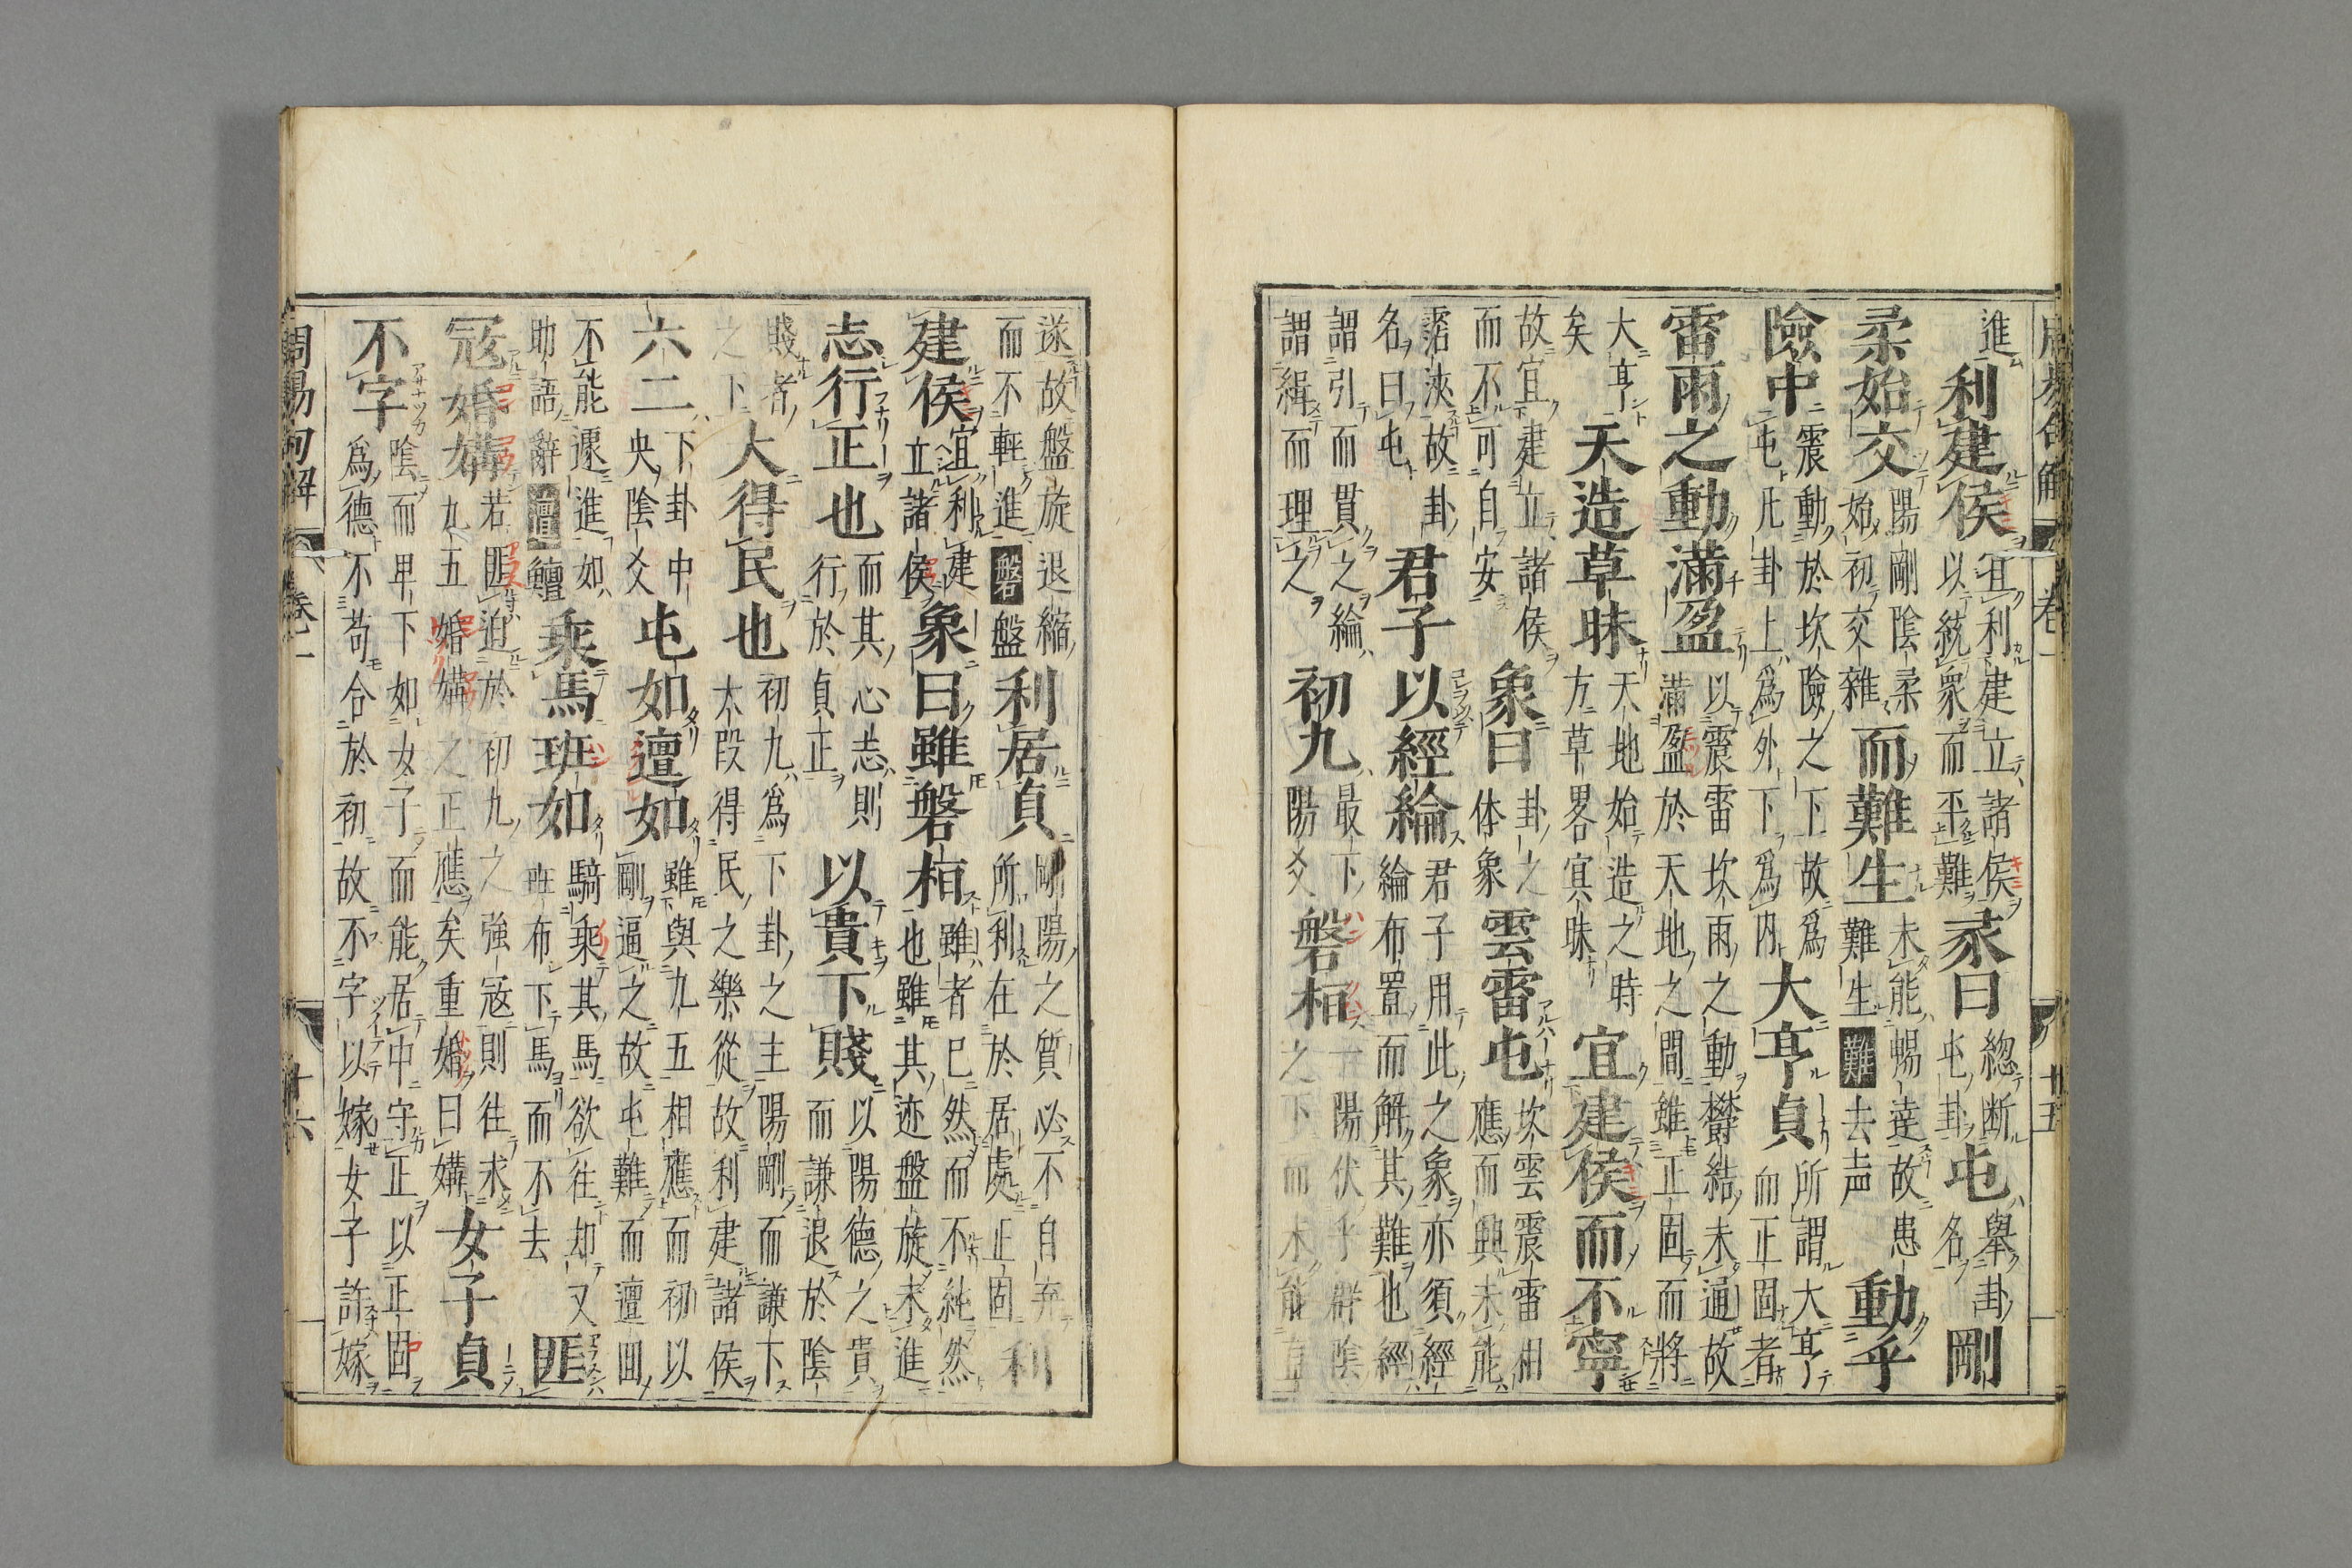 周易句解 卷一 十五
進
利建侯
宜利建立諸侯
以統衆而平難
彖曰
緫断
屯卦
屯
舉卦
名
剛
柔始交
陽剛陰柔
始初交雜
而難生
未能暢達故患
難生難去声
動乎
險中
震動於坎險之下故爲
屯凡卦上爲外下爲内
大亨貞
所謂大亨
而正固者
雷雨之動滿盈
以震雷坎雨之動欝結未通故
滿盈於天地之間雖正固而將
大亨
矣
天造草昧
天地始造之時
方草畧冥昧
宜建侯而不寧
故宜建立諸侯
而不可自安
象曰
卦之
体象
雲雷屯
坎雲震雷相
應而興未能
霑浹故卦
名曰屯
君子以經綸
君子用此之象亦須經
綸布置而解其難也經
謂引而貫之綸
謂緝而理之
初九
最下
陽爻
磐桓
一陽伏乎群陰
之下而未能直
遂故盤旋退縮
而不輕進磐盤
利居貞
剛陽之質必不自弃
所利在於居處正固
利
建侯
宜利建
立諸侯
象曰雖磐桓
雖者已然而不純然
也雖其迹盤旋未進
志行正也
而其心志則
行於貞正
以貴下賤
以陽德之貴
而謙退於陰
賤者
之下
大得民也
初九爲下卦之主陽剛而謙下
太段得民之樂從故利建諸侯
六二
下卦中
央陰爻
屯如邅如
雖與九五相應而初以
剛逼之故屯難而邅回
不能遽進如
助語辭邅鱣
乘馬班如
騎乘其馬欲往却又
班布下馬而不去
匪
冦婚媾
若匪迫於初九之強冦則往求
九五婚媾之正應矣重婚曰媾
女子貞
不字
陰而卑下如女子而能居中守正以正固
爲德不苟合於初故不字以嫁女子許嫁
周易句解 卷一 十六